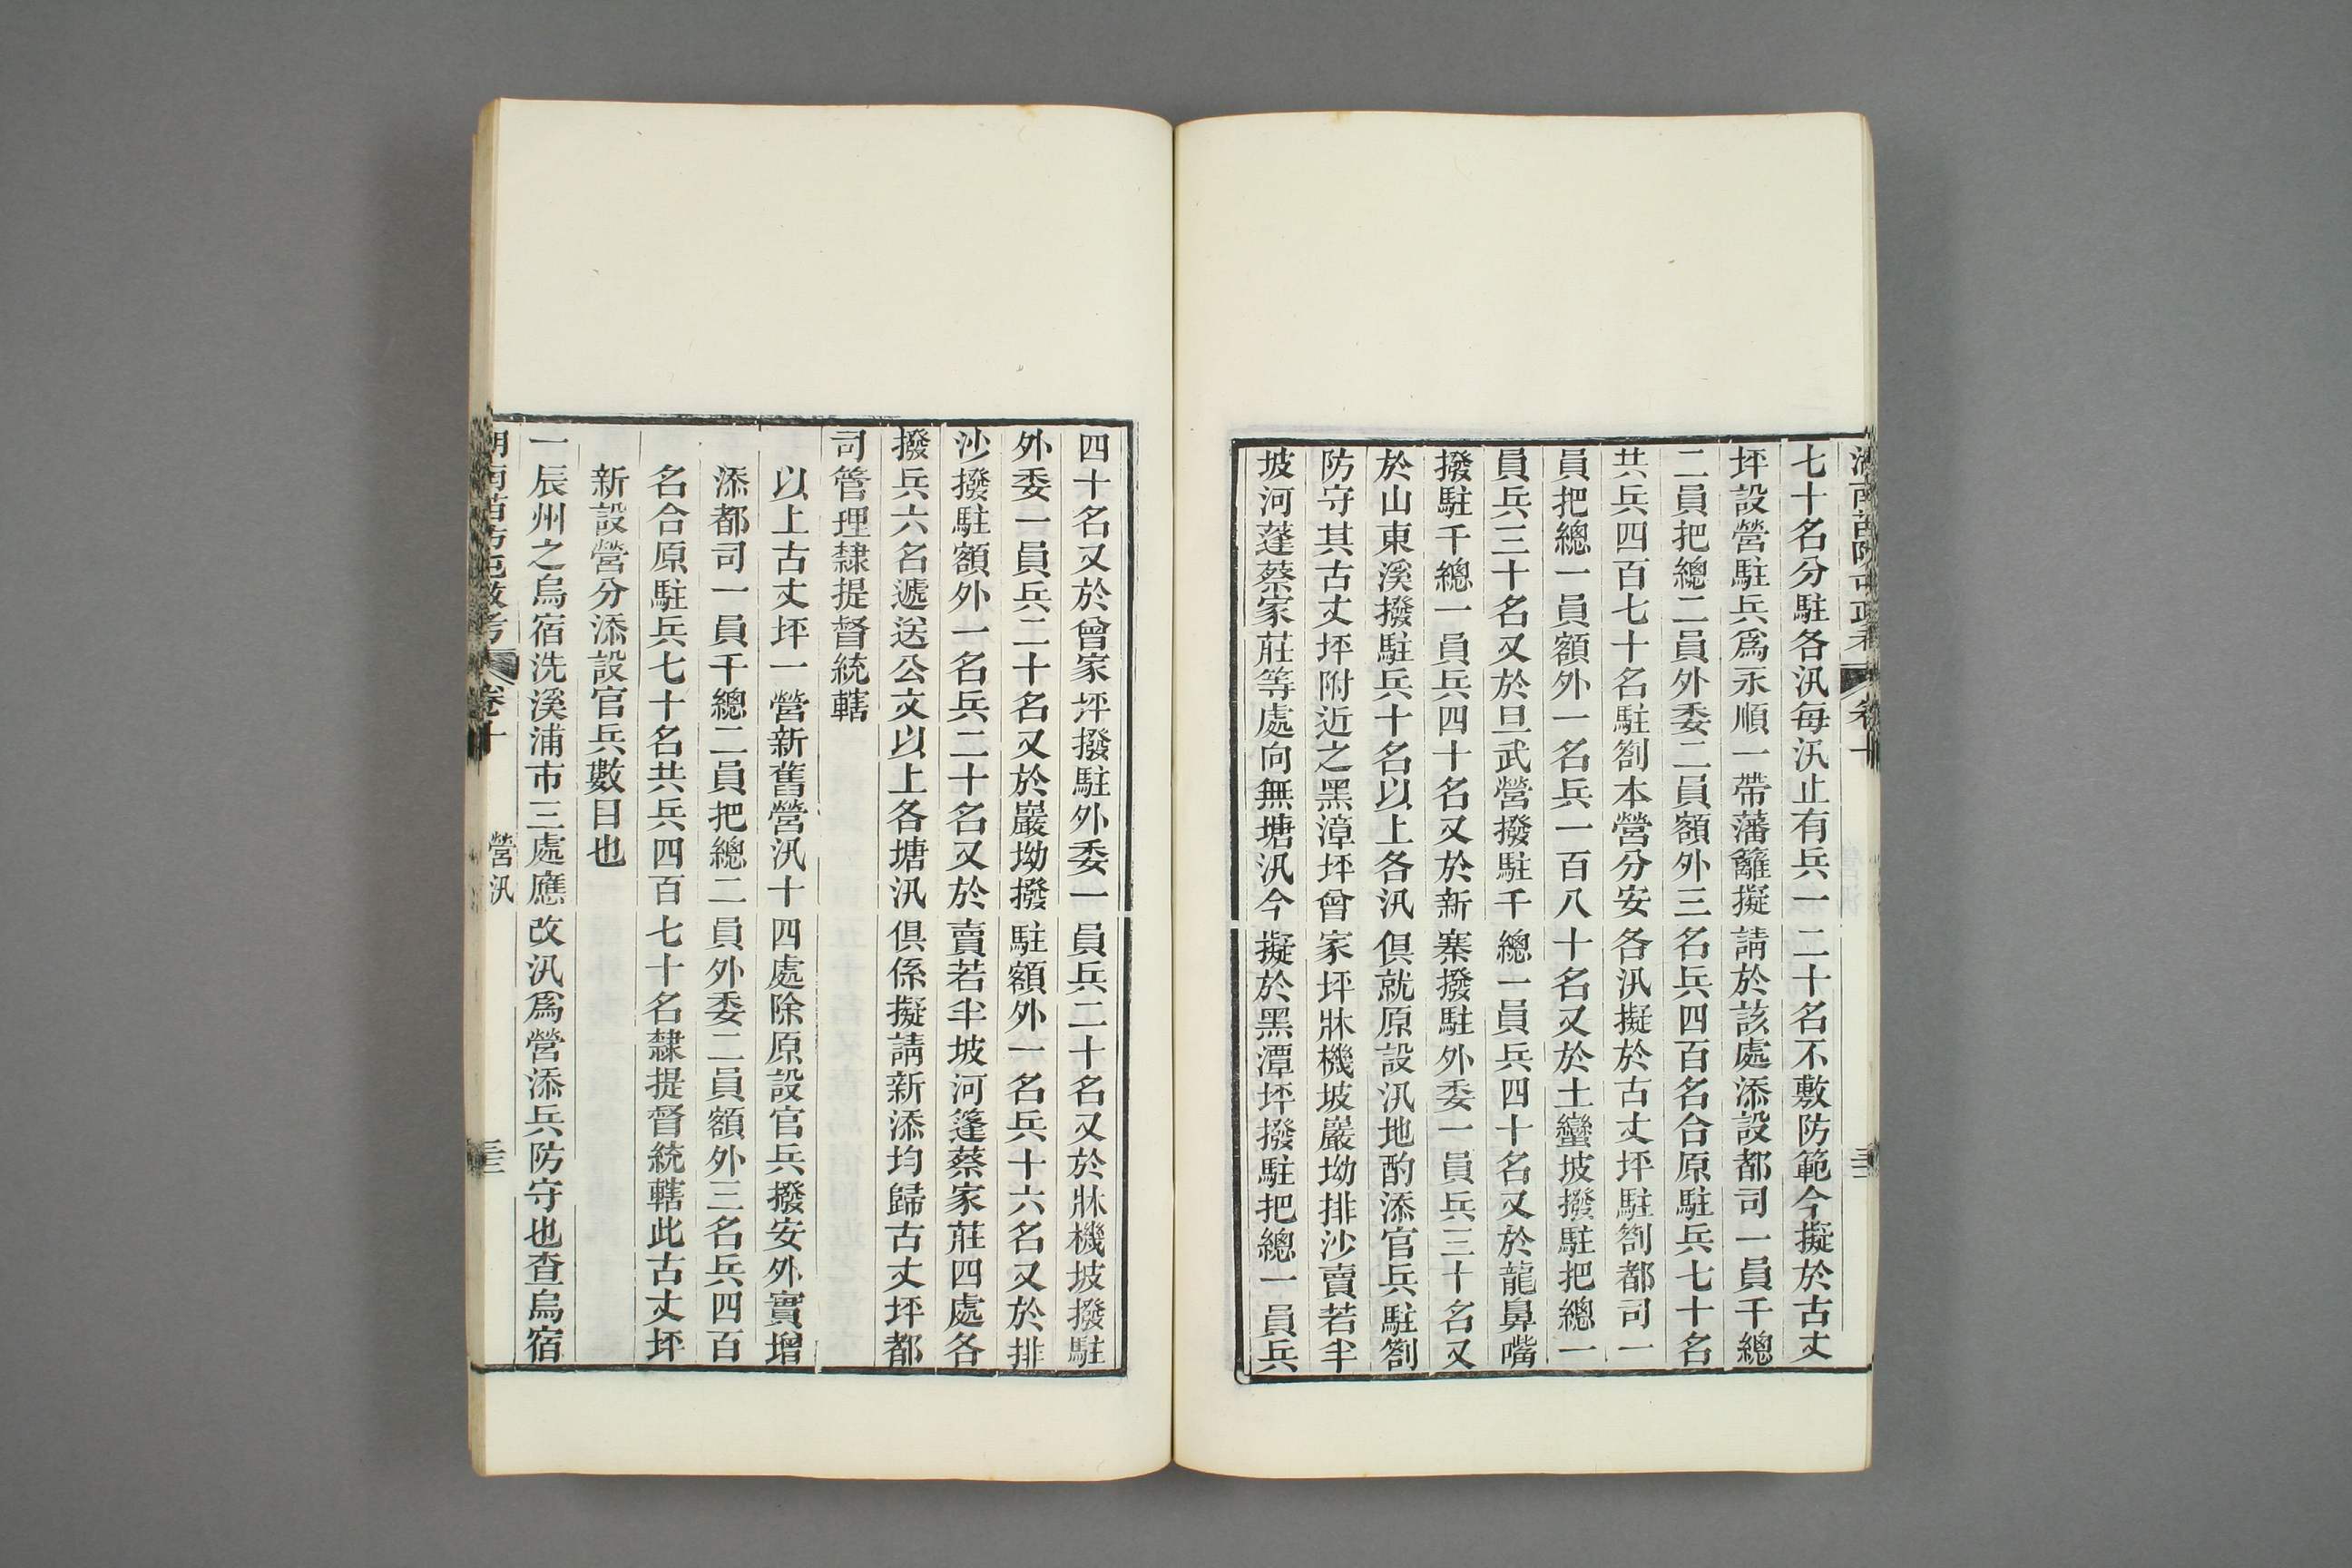 七十名分駐各汛每汛止有兵一二十名不敷防範今擬於古丈
坪設營駐兵爲永順一帶藩籬擬請於該處添設都司一員千總
二員把總二員外委二員額外三名兵四百名合原駐兵七十名
共兵四百七十名駐劄本營分安各汛擬於古丈坪駐劄都司一
員把總一員額外一名兵一百八十名又於土蠻坡撥駐把總一
員兵三十名又於旦武營撥駐千總一員兵四十名又於龍鼻嘴
撥駐千總一員兵四十名又於新寨撥駐外委一員兵三十名又
於山東溪撥駐兵十名以上各汛俱就原設汛地酌添官兵駐劄
防守其古丈坪附近之黑漳坪曾家坪牀機坡巖坳排沙賣若半
坡河蓬蔡家莊等處向無塘汛今擬於黑潭坪撥駐把總一員兵
四十名又於曾家坪撥駐外委一員兵二十名又於牀機坡撥駐
外委一員兵二十名又於巖坳撥駐額外一名兵十六名又於排
沙撥駐額外一名兵二十名又於賣若半坡河篷蔡家莊四處各
撥兵六名遞送公文以上各塘汛俱係擬請新添均歸古丈坪都
司管理隸提督統轄
以上古丈坪一營新舊營汛十四處除原設官兵撥安外實增
添都司一員千總二員把總二員外委二員額外三名兵四百
名合原駐兵七十名共兵四百七十名隸提督統轄此古丈坪
新設營分添設官兵數目也
一辰州之烏宿洗溪浦市三處應改汛爲營添兵防守也查烏宿
湖南苗防屯政考 卷十 營汛